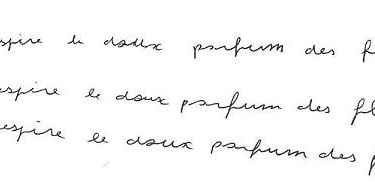 espire le doux parfum des f
espire le doux parfum des fl
espire le doux parfum des f